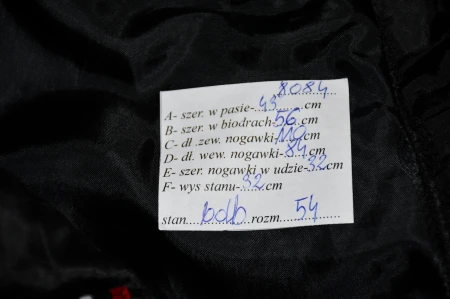 8084
A- szer. w pasie-43cm
B- szer. w biodrach-56cm
C- dł .zew. nogawki-110cm
D- dł. wew. nogawki-84cm
E- szer. nogawki w udzie-32cm
F- wys stanu-32cm
stan....bdb....rozm....54....